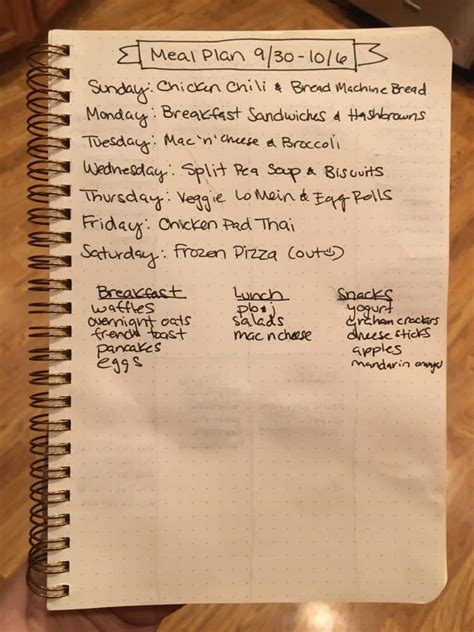 Meal Plan 9/30-10/6
Sunday: Chicken Chili & Bread Machine Bread
Monday: Breakfast Sandwiches & Hashbrowns
Tuesday: Mac 'n' Cheese & Broccoli
Wednesday: Split Pea Soup & Biscuits
Thursday: Veggie Lo Mein & Egg Rolls
Friday: Chicken Pad Thai
Saturday: Frozen Pizza (out☺)
Breakfast
waffles
overnight oats
french toast
pancakes
eggs
Lunch
pb&j
salads
mac n cheese
Snacks
yogurt
graham crackers
cheese sticks
apples
mandarin oranges